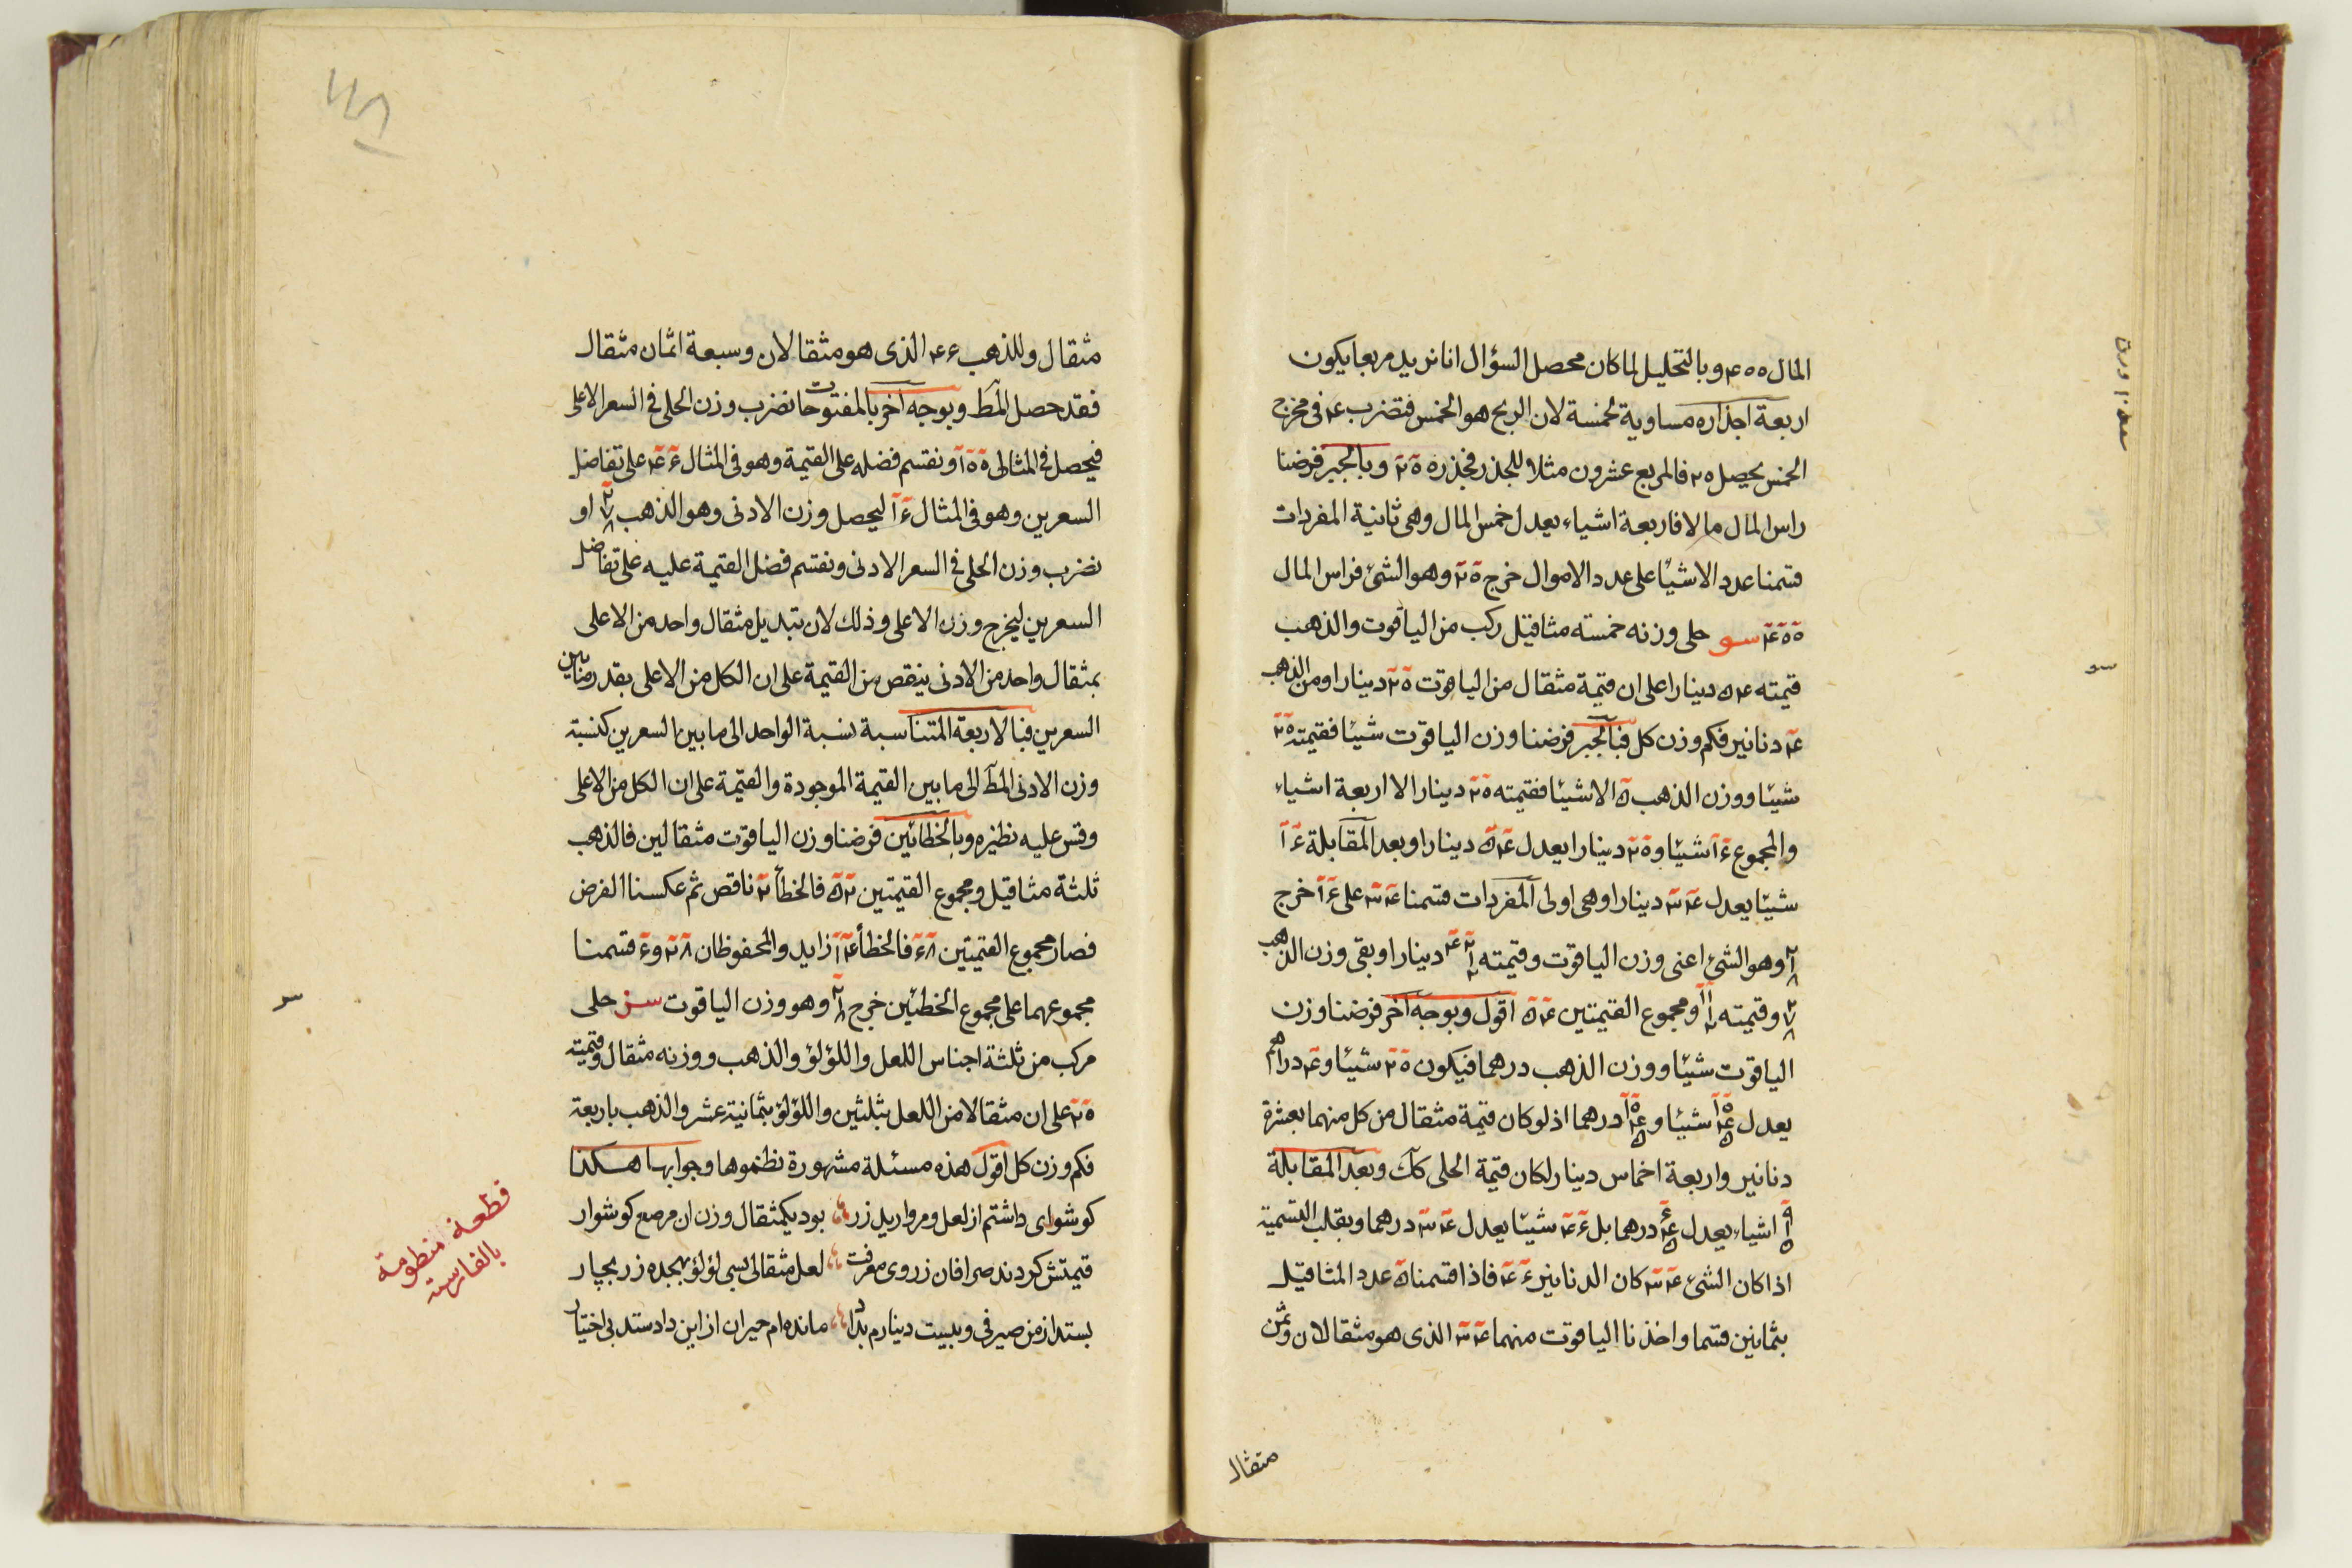 المال ٥٥٤ وبالتحليل لما كان محصل السؤال انا نريد مربعا يكون
اربعة اجذاره مساوية لخمسة لان الربح هو الخمس فتضرب ٤ فى مخرج
الخمس يحصل ٢٥ فالمربع عشرون مثلا للجذر فجذره ٢٥ وبالجبر فرضنا
راس المال مالا فاربعة اشياء يعدل خمس المال وهى ثانية المفردات
قسمنا عدد الاشئا على عدد الاموال خرج ٢٥ وهو الشئ فراس المال
٤٥٥ سو حلى وزنه خمسته مثاقيل ركب من الياقوت والذهب
قيمته ٥٤ دينارا على ان قيمة مثقال من الياقوت ٢٥ دينارا ومن الذهب
٤ دنانير فكم وزن كل فبالجبر فرضنا وزن الياقوت شيئا فقيمته ٢٥
شيئا ووزن الذهب ٥ الا شيئا فقيمته ٢٥ دينارا الا اربعة اشياء
والمجموع ١٤ شيئا و ٢٥ دينارا يعدل ٥٤ دينارا وبعد المقابلة ١٤
شيئا يعدل ٣٤ دينارا وهى اولى المفردات قسمنا ٣٤ على ١٤ خرج
وهو الشئ اعنى وزن الياقوت وقيمته دينارا وبقى وزن الذهب
وقيمته ومجموع القيمتين ٥٤ اقول وبوجه آخر فرضنا وزن
الياقوت شيئا ووزن الذهب درهما فيكون ٢٥ شيئا و ٤ دراهم
يعدل شيئا و درهما اذ لو كان قيمة مثقال من كل منهما بعشرة
دنانير واربعة اخماس دينار لكان قيمة الحلى كك وبعد المقابلة
اشياء يعدل درهما بل ٤٤ شيئا يعدل ٣٤ درهما وبقلب التسمية
اذا كان الشئ ٣٤ كان الدنانير ٤٤ فاذا قسمنا ٥ عدد المثاقيل
بثمانين قسما واخذنا الياقوت منهما ٣٤ الذى هو مثقالان وثمن
مثقال
سو
مثقال وللذهب ٤٤ الذى هو مثقالان وسبعة اثمان مثقال
فقد حصل المط وبوجه آخر بالمفتوحات نضرب وزن الحلى فى السعر الاعلى
فيحصل فى المثال ١٥٥ ونقسم فضله على القيمة وهو فى المثال ٤٤ على تفاضل
السعرين وهو فى المثال ١٤ ليحصل وزن الادنى وهو الذهب او
نضرب وزن الحلى فى السعر الادنى ونقسم فضل القيمة عليه على تفاضل
السعرين ليخرج وزن الاعلى وذلك لان تبديل مثقال واحد من الاعلى
بمثقال واحد من الادنى ينقص من القيمة على ان الكل من الاعلى بقدر ما بين
السعرين فبالاربعة المتناسبة نسبة الواحد الى ما بين السعرين كنسبة
وزن الادنى المط الى ما بين القيمة الموجودة والقيمة على ان الكل من الاعلى
وقس عليه نظيره وبالخطائين فرضنا وزن الياقوت مثقالين فالذهب
ثلثة مثاقيل ومجموع القيمتين ٥٢ فالخطأ ٢ ناقص ثم عكسنا الفرض
فصار مجموع القيمتين فالخطأ ١٤ زايد والمحفوظان ٢٨ و ٤ قسمنا
مجموعهما على مجموع الخطئين خرج وهو وزن الياقوت سز حلى
مركب من ثلثة اجناس اللعل واللؤلؤ والذهب ووزنه مثقال وقيمته
٢٥ على ان مثقالا من اللعل بثلثين واللؤلؤ بثمانية عشر والذهب باربعة
فكم وزن كل اقول هذه مسئلة مشهورة نظموها وجوابها هكذا
كوشوارى داشتم از لعل ومرواريد زر بود يكمثقال وزن ان مرصع كوشوار
قيمتش كردند صرافان ز روى معرفت لعل مثقالى بسى لؤلؤ بهجده زر بچار
بستد از من صيرفى وبيست دينارم بداد مانده ام حيران ازين داد ستد بى اختيار
قطعة منظومة
بالفارسية